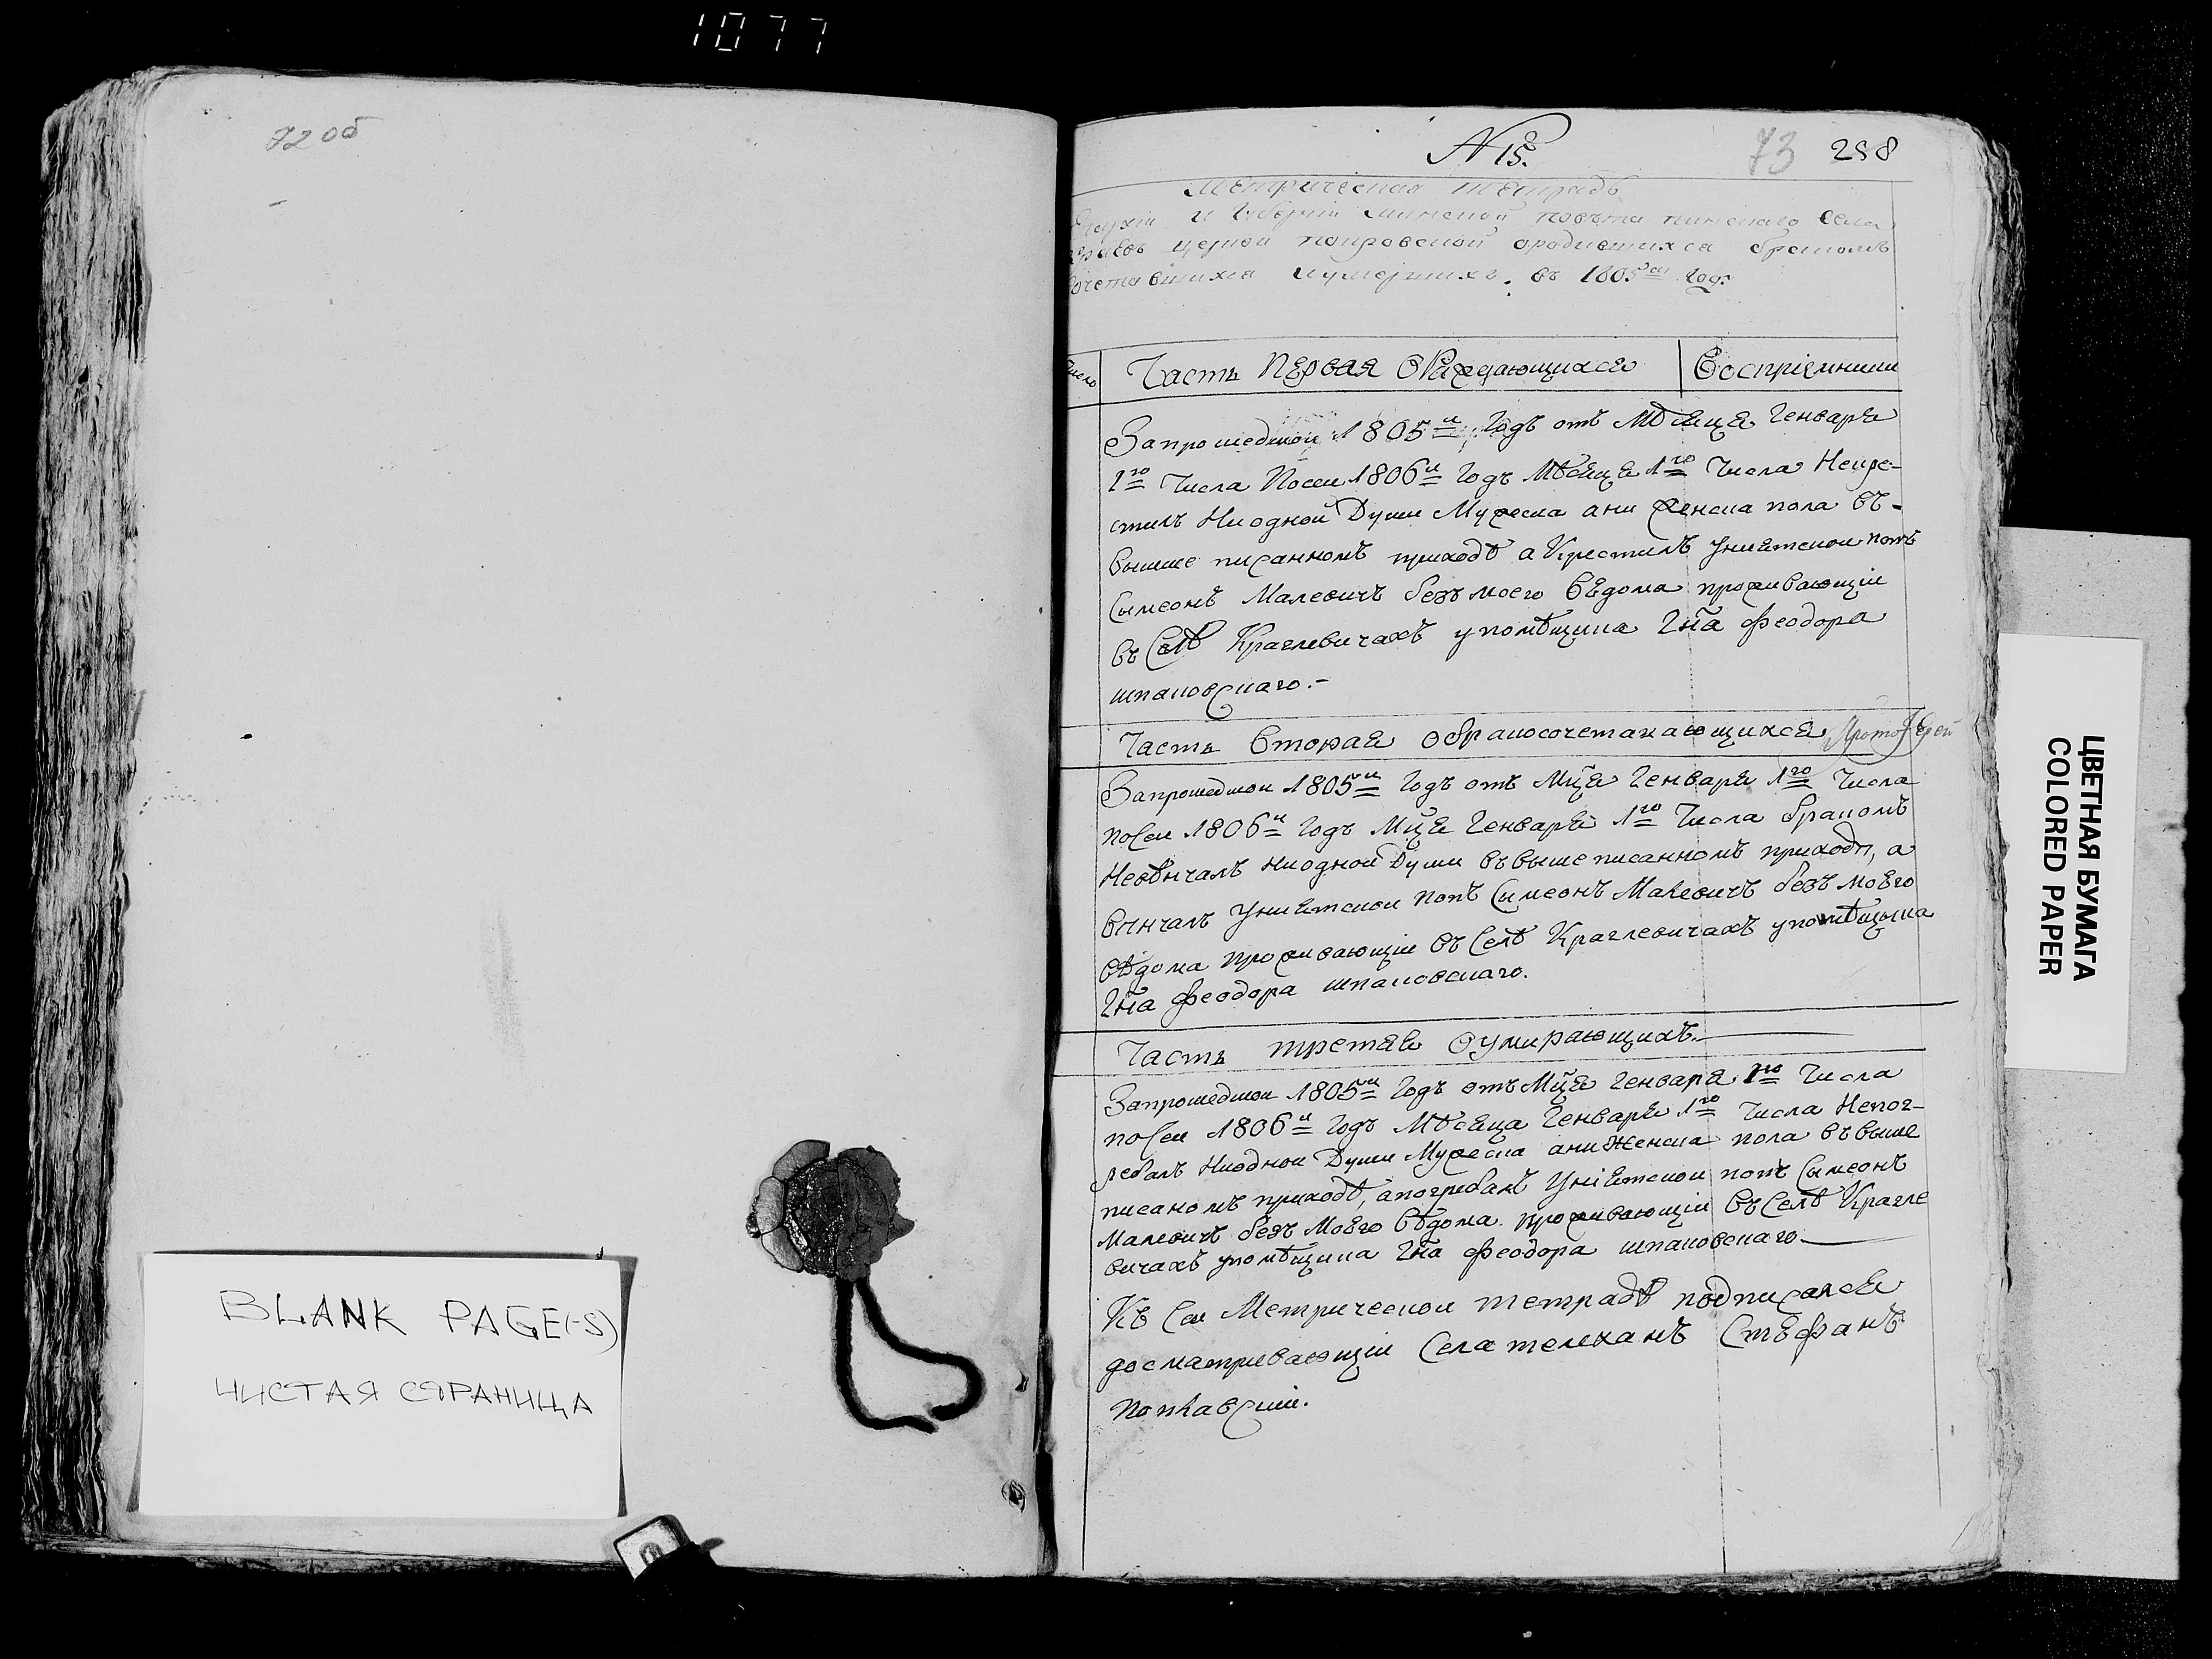 1077
72 об
BLANK PAGE(-S)
ЧИСТАЯ СТРАНИЦА
N 15.
73 298
Метрическая тетрадь
и Губерніи минской повѣта пинскаго Села
церкви покровской ородившихса бракомъ
сочетавшихса иумершихъ. въ 1805м год:
Число
Часть Первая ОРаждающихся
Воспріемники
Запрошедшои 1805и Годъ отъ Мѣсяця Генваря
1го Числа Посеи 1806и Годъ Мѣсяця 1го Числа Некре-
стилъ Ниодной Души Мужеска ани Женска пола въ-
вышше писанномъ приходѣ а Крестилъ Униятскои попъ
Сымеонъ Малевичъ безъ моего вѣдома проживающіи
въ Селѣ Краглевичахъ упомѣщика Гна Феодора
шпаковскаго.-
Часть вторая обракосочетакающихся
ПротоІерей
Запрошедшои 1805и Годъ отъ Мця Генваря 1го Числа
посеи 1806и Годъ Мця Генваря 1го Числа бракомъ
Невѣнчалъ ниодной Души въвыше писанномъ приходѣ, а
внчалъ Униятскои попъ Сымеонъ Малевичъ безъ моего
вѣдома проживающіи въ Селѣ Краглевичахъ упомѣщыка
Гна Феодора шпаковскаго.
Часть третяя Оумирающихъ.
Запрошедшои 1805и Годъ отъ Мця Генваря 1го Числа
посеи 1806и Годъ Мѣсяца Генваря 1го Числа Непог-
ребалъ Ниоднои Души Мужеска ани Женска пола въвыше
писаномъ приходѣ, апогребалъ Уніятскои попъ Сымеонъ
Малевичъ безъ Моего вѣдома проживающіи въ Селѣ Крагле
вичахъ упомѣщика Гна Феодора шпаковскаго
Къ Сеи Метрическои тетрадѣ подписался
досматривающіи Села телеханъ Стефанъ
ЦВЕТНАЯ БУМАГА
COLORED PAPER